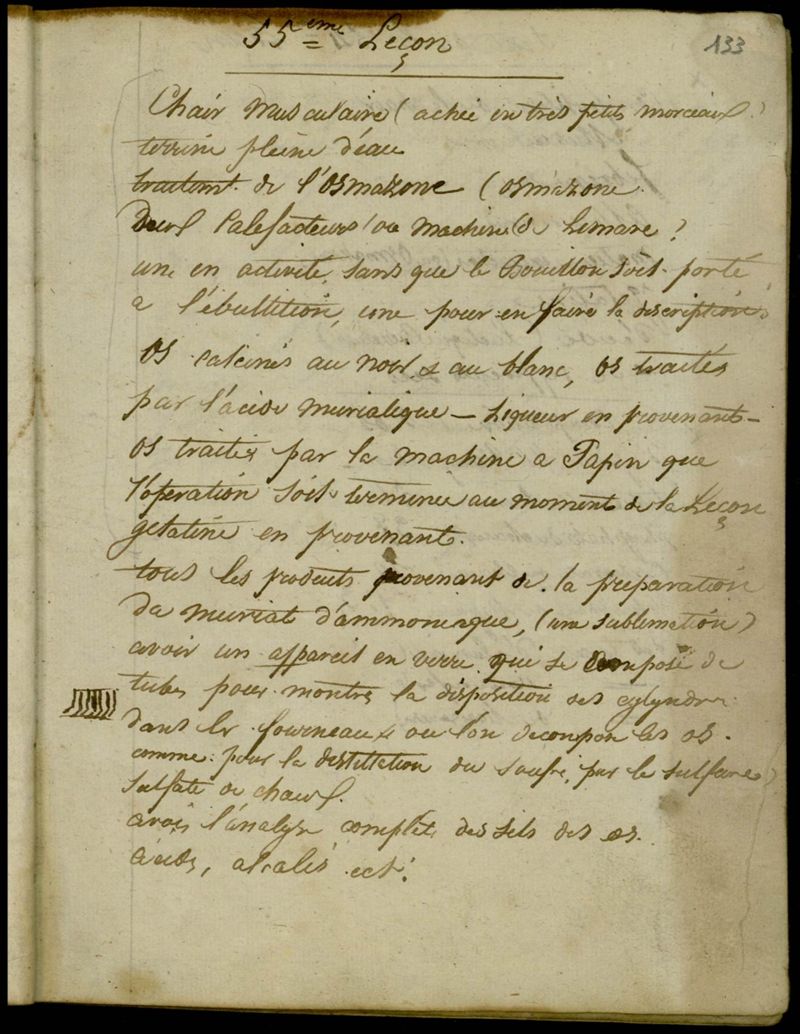 55ème Leçon
133
Chair Musculaire (achée en très petits morceaux)
terrine pleine d'eau
traitemt de l'osmazone (osmazone
Deux Calefacteurs (ou machine) de Lemare)
une en activité, sans que le Bouillon soit porté
a l'ébullition, une pour en faire la description
os calcinés au noir & au blanc, os traités
par l'acide muriatique - Liqueur en provenant -
os traités par la machine a Papin que
l'opération soit terminée au moment de la Leçon
gelatine en provenant.
tous les produits provenant de la preparation
du muriate d'ammoniaque, (une sublimation)
avoir un appareil en verre qui se compose de
tubes pour montrer la disposition des cylyndres
dans le fourneau & ou l'on decompose les os.
comme pour la distillation du soufre, par le
sulfate de chaux.
avoir l'analyse complète des sels des os.
acides, alcalis ect.